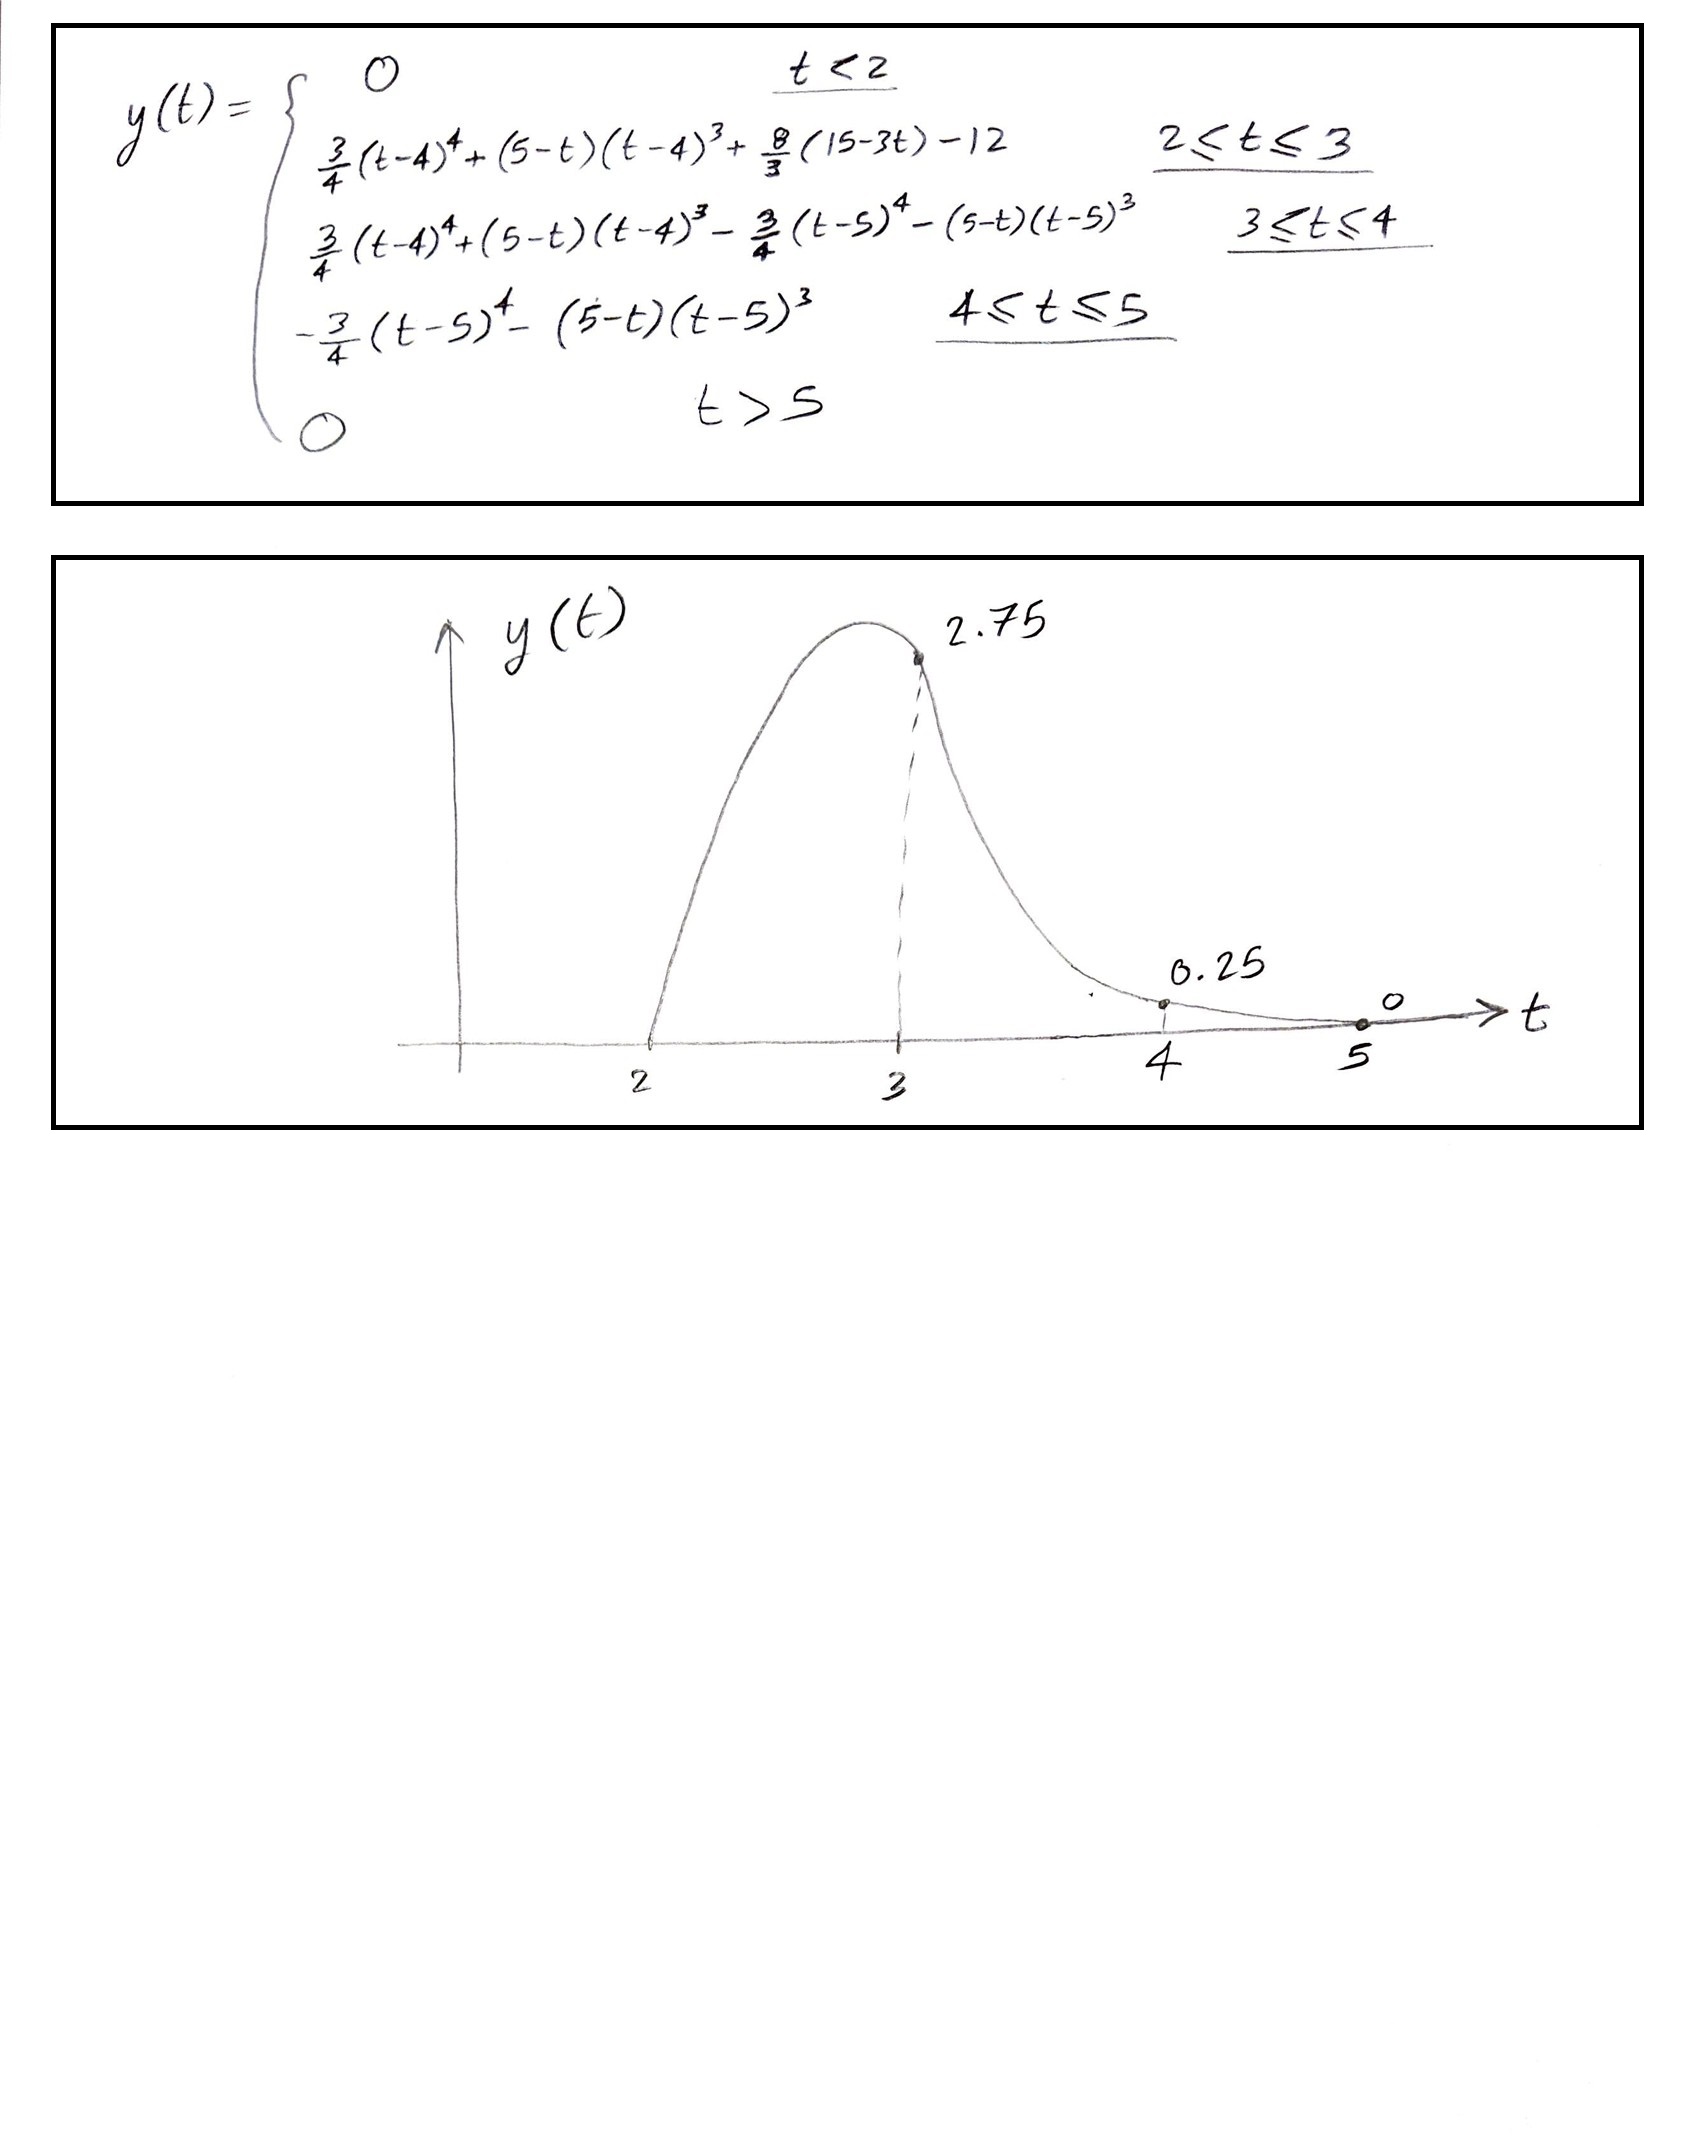 y(t) = { 0 t < 2
3/4 (t-4)^4 + (5-t)(t-4)^3 + 8/3 (15-3t) - 12 2 ≤ t ≤ 3
3/4 (t-4)^4 + (5-t)(t-4)^3 - 3/4 (t-5)^4 - (5-t)(t-5)^3 3 ≤ t ≤ 4
-3/4 (t-5)^4 - (5-t)(t-5)^3 4 ≤ t ≤ 5
0 t > 5
y(t)
2.75
0.25
0
t
2 3 4 5